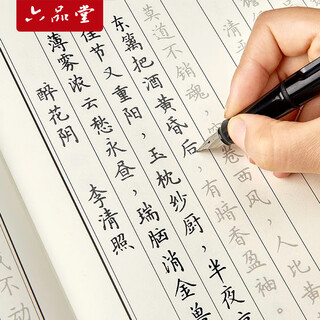 六品堂
醉花阴 李清照
薄雾浓云愁永昼，瑞脑消金兽
佳节又重阳，玉枕纱厨，半夜
东篱把酒黄昏后，有暗香盈袖。
莫道不销魂，卷西风，人比黄
清平
不动